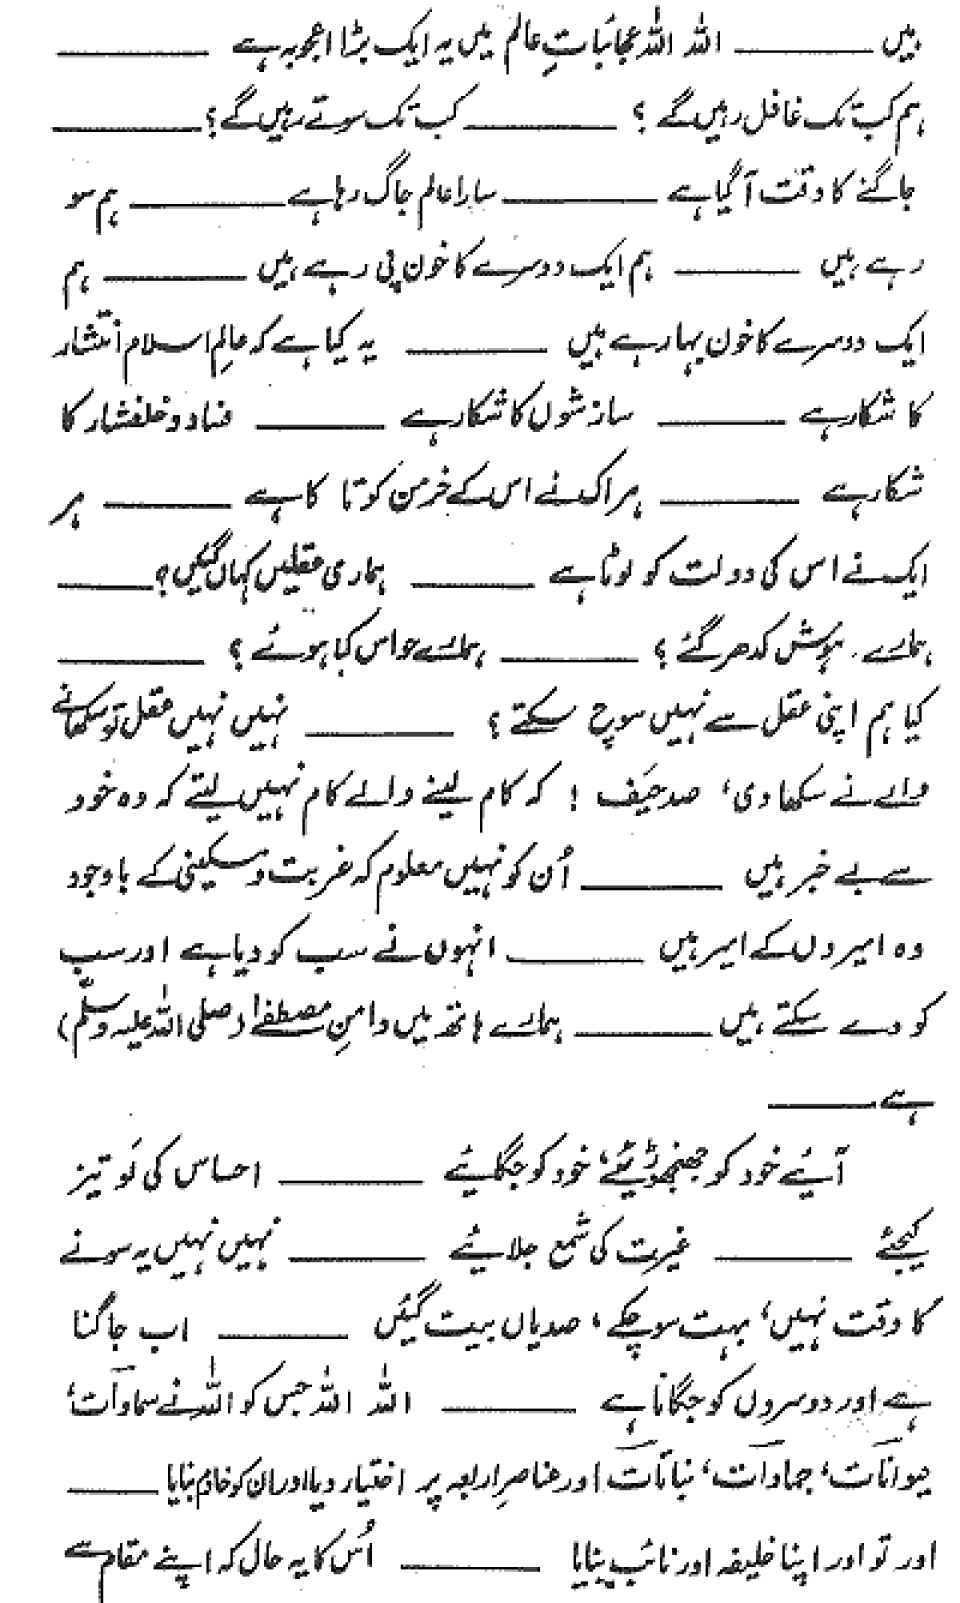 ہیں ــــــــ اللہ اللہ عجائباتِ عالم میں یہ ایک بڑا اعجوبہ ہے ــــــــ
ہم کب تک غافل رہیں گے ؟ ــــــــ کب تک سوتے رہیں گے؟ ــــــــ
جاگنے کا وقت آ گیا ہے ــــــــ سارا عالم جاگ رہا ہے ــــــــ ہم سو
رہے ہیں ــــــــ ہم ایک دوسرے کا خون پی رہے ہیں ــــــــ ہم
ایک دوسرے کا خون بہا رہے ہیں ــــــــ یہ کیا ہے کہ عالمِ اسلام انتشار
کا شکار ہے ــــــــ سازشوں کا شکار ہے ــــــــ فساد و خلفشار کا
شکار ہے ــــــــ ہر اک نے اس کے خرمن کو تا کا ہے ــــــــ ہر
ایک نے اس کی دولت کو لوٹا ہے ــــــــ ہماری عقلیں کہاں گئیں؟ ــــــــ
ہمارے ہوش کدھر گئے ؟ ــــــــ ہمارے حواس کیا ہوئے ؟ ــــــــ
کیا ہم اپنی عقل سے نہیں سوچ سکتے ؟ ــــــــ نہیں نہیں عقل تو سکھانے
والے نے سکھا دی، صد حَیف ! کہ کام لینے والے کام نہیں لیتے کہ وہ خود
سے بے خبر ہیں ــــــــ اُن کو نہیں معلوم کہ غربت و مسکینی کے باوجود
وہ امیروں کے امیر ہیں ــــــــ انہوں نے سب کو دیا ہے اور سب
کو دے سکتے ہیں ــــــــ ہمارے ہاتھ میں دامنِ مصطفےٰ (صلی اللہ علیہ وسلّم)
ہے ــــــــ
آئیے خود کو جھنجھوڑیئے، خود کو جگائیے ــــــــ احساس کی لَو تیز
کیجئے ــــــــ غیرت کی شمع جلائیے ــــــــ نہیں نہیں یہ سونے
کا وقت نہیں، بہت سو چکے، صدیاں بیت گئیں ــــــــ اب جاگنا
ہے اور دوسروں کو جگانا ہے ــــــــ اللہ اللہ جس کو اللہ نے سماوات،
حیوانات، جمادات، نباتات اور عناصرِ اربعہ پر اختیار دیا اور ان کو خادم بنایا ــــــــ
اور تو اور اپنا خلیفہ اور نائب بنایا ــــــــ اُس کا یہ حال کہ اپنے مقام سے